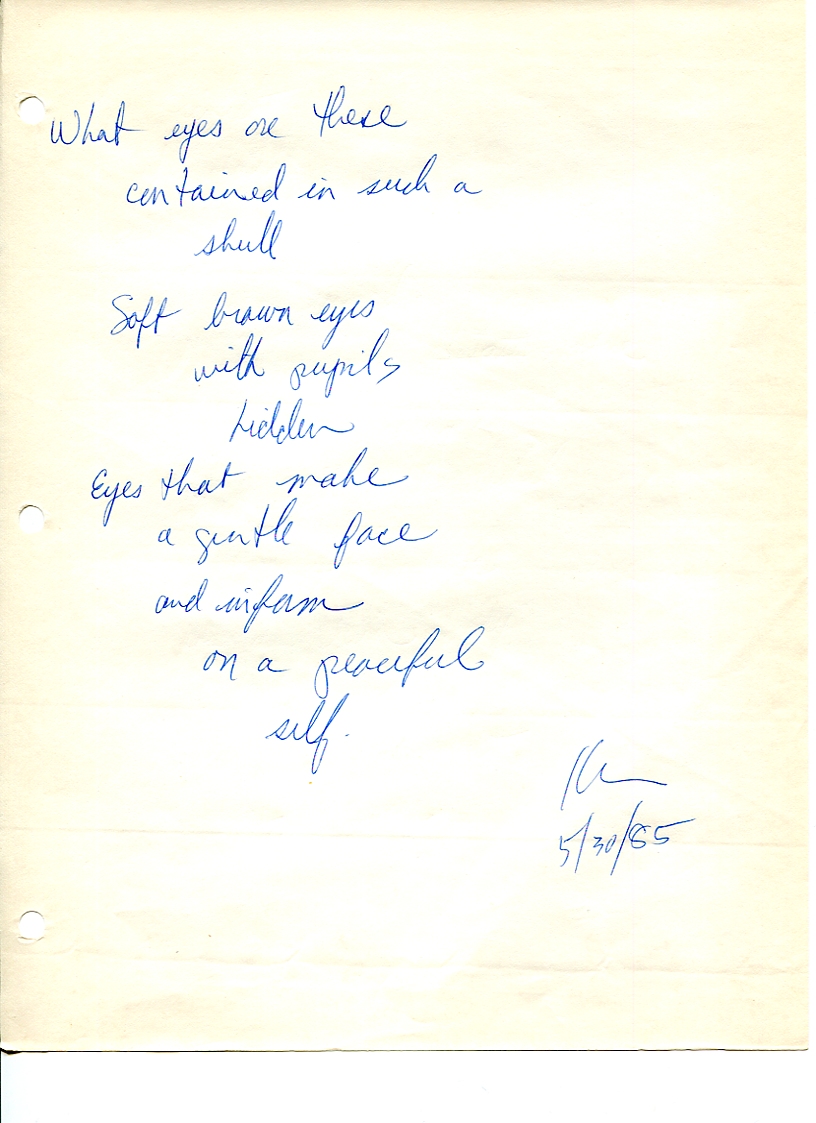 What eyes are these
contained in such a
skull
Soft brown eyes
with pupils
hidden
Eyes that make
a gentle face
and inform
on a peaceful
self.
5/30/85